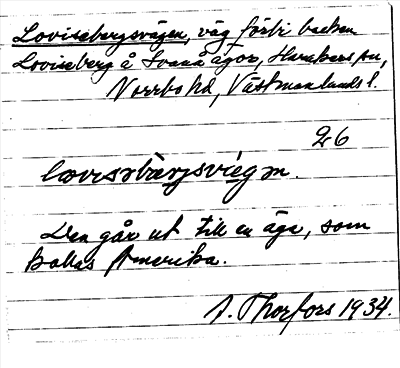 Lovisebergsvägen, väg förbi backen
Loviseberg å Svanå ägor, Harakers sn,
Norrbo hd, Västmanlands l.
26
lovisəbærjsvegən.
Den går ut till en äga, som
kallas Amerika.
A. Thorfors 1934.